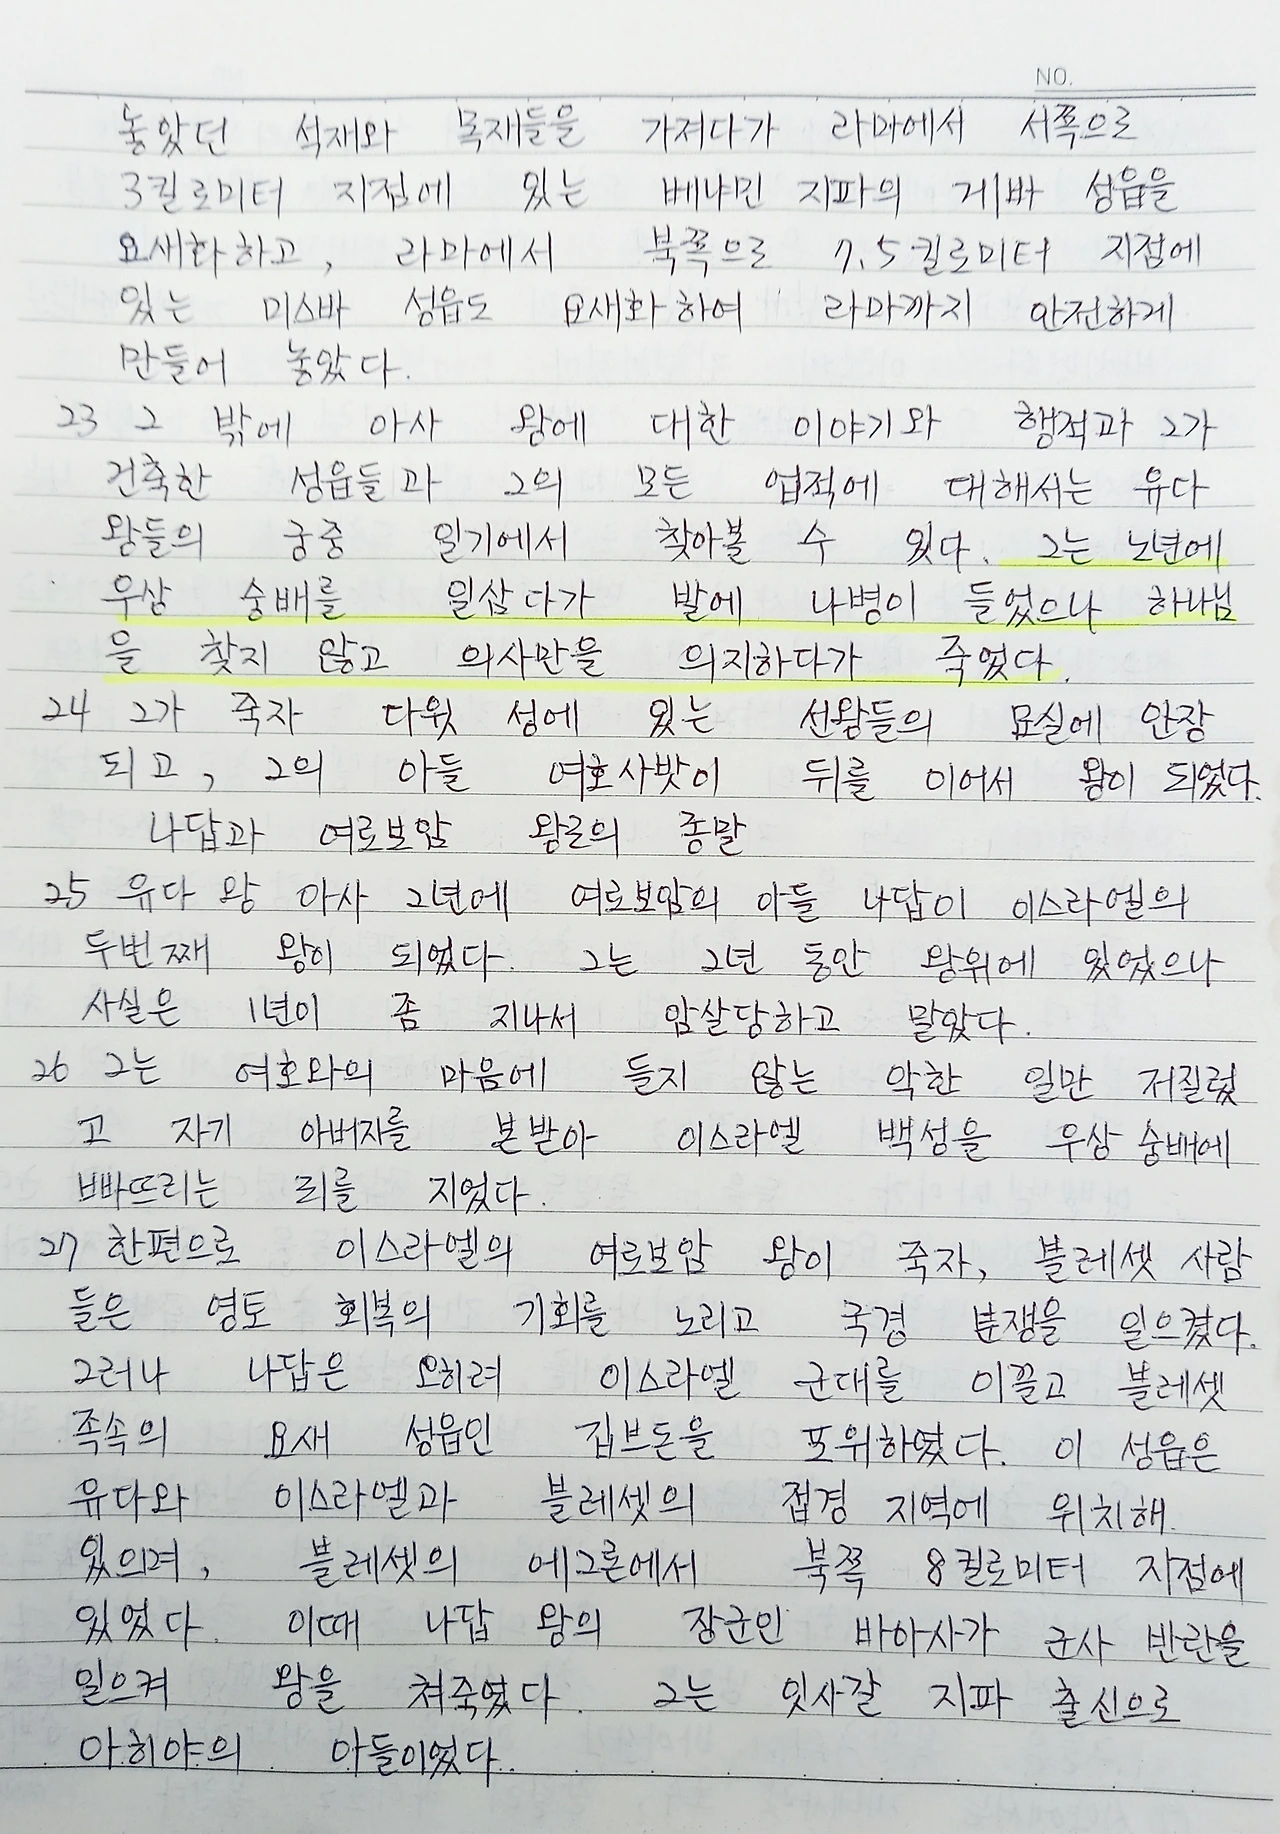 NO.
놓았던 석재와 목재들을 가져다가 라마에서 서쪽으로
3킬로미터 지점에 있는 베냐민 지파의 게바 성읍을
요새화하고, 라마에서 북쪽으로 7.5킬로미터 지점에
있는 미스바 성읍도 요새화하여 라마까지 안전하게
만들어 놓았다.
23 그 밖에 아사 왕에 대한 이야기와 행적과 그가
건축한 성읍들과 그의 모든 업적에 대해서는 유다
왕들의 궁중 일기에서 찾아볼 수 있다. 그는 노년에
우상 숭배를 일삼다가 발에 나병이 들었으나 하나님
을 찾지 않고 의사만을 의지하다가 죽었다.
24 그가 죽자 다윗 성에 있는 선왕들의 묘실에 안장
되고, 그의 아들 여호사밧이 뒤를 이어서 왕이 되었다.
나답과 여로보암 왕론의 종말
25 유다 왕 아사 2년에 여로보암의 아들 나답이 이스라엘의
두번째 왕이 되었다. 그는 2년 동안 왕위에 있었으나
사실은 1년이 좀 지나서 암살당하고 말았다.
26 그는 여호와의 마음에 들지 않는 악한 일만 저질렀
고 자기 아버지를 본받아 이스라엘 백성을 우상 숭배에
빠뜨리는 죄를 지었다.
27 한편으로 이스라엘의 여로보암 왕이 죽자, 블레셋 사람
들은 영토 회복의 기회를 노리고 국경 분쟁을 일으켰다.
그러나 나답은 오히려 이스라엘 군대를 이끌고 블레셋
족속의 요새 성읍인 깁브돈을 포위하였다. 이 성읍은
유다와 이스라엘과 블레셋의 접경 지역에 위치해
있으며, 블레셋의 에그론에서 북쪽 8킬로미터 지점에
있었다. 이때 나답 왕의 장군인 바아사가 군사 반란을
일으켜 왕을 쳐죽였다. 그는 잇사갈 지파 출신으로
아히야의 아들이었다.